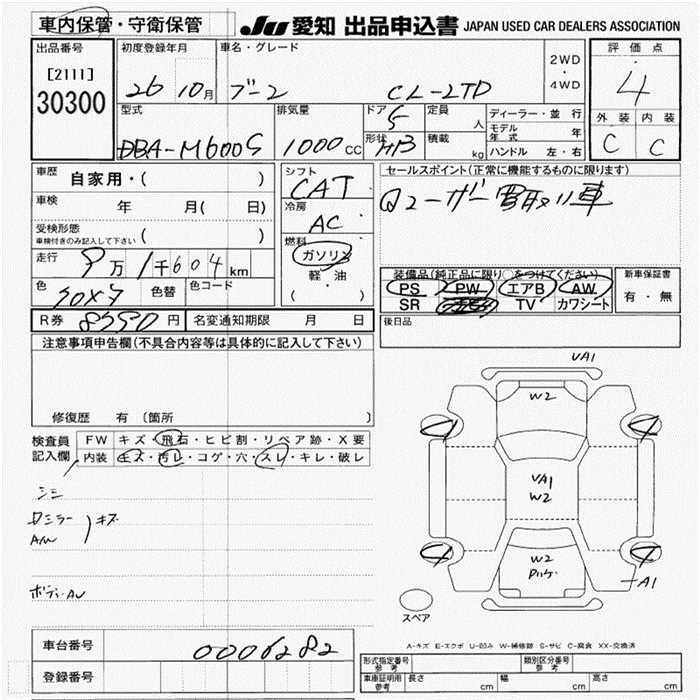 車内保管・守衛保管
JU 愛知 出品申込書 JAPAN USED CAR DEALERS ASSOCIATION
出品番号 初度登録年月 車名・グレード 2WD・4WD 評価点
[2111]
30300 26 10月 ブーン CL-LTD 4
型式 排気量 ドア 定員 人 ディーラー・並行 外装 内装
DBA-M600S 1000cc 5 形状 HB 積載 kg モデル年式 年 C C
ハンドル 左・右
車歴 自家用・( ) シフト CAT セールスポイント(正常に機能するものに限ります)
車検 年 月( 日) 冷房 AC Qユーザー買取り車
受検形態 ( )
車検付きのみ記入して下さい
燃料 ガソリン 軽・油 ( )
走行 9万1千604km
装備品(純正品に限り○をつけてください) 新車保証書
色 色替 色コード PS PW エアB AW 有・無
SR TV カワシート
R券 円 名変通知期限 月 日 後日品
注意事項申告欄(不具合内容等は具体的に記入して下さい)
修復歴 有 〔箇所 〕
検査員記入欄 FW キズ・飛石・ヒビ割・リペア跡・X要
内装 キズ・汚レ・コゲ・穴・スレ・キレ・破レ
シミ
ダミラー
AW
キズ
UA1
W2
UA1
W2
W2
A1
スペア
A-キズ E-エクボ U-凹み W-補修跡 S-サビ C-腐食 XX-交換済
車台番号 0006282
登録番号
形式指定番号 参考 類別区分番号 参考
車庫証明用 参考 長さ cm 幅 cm 高さ cm